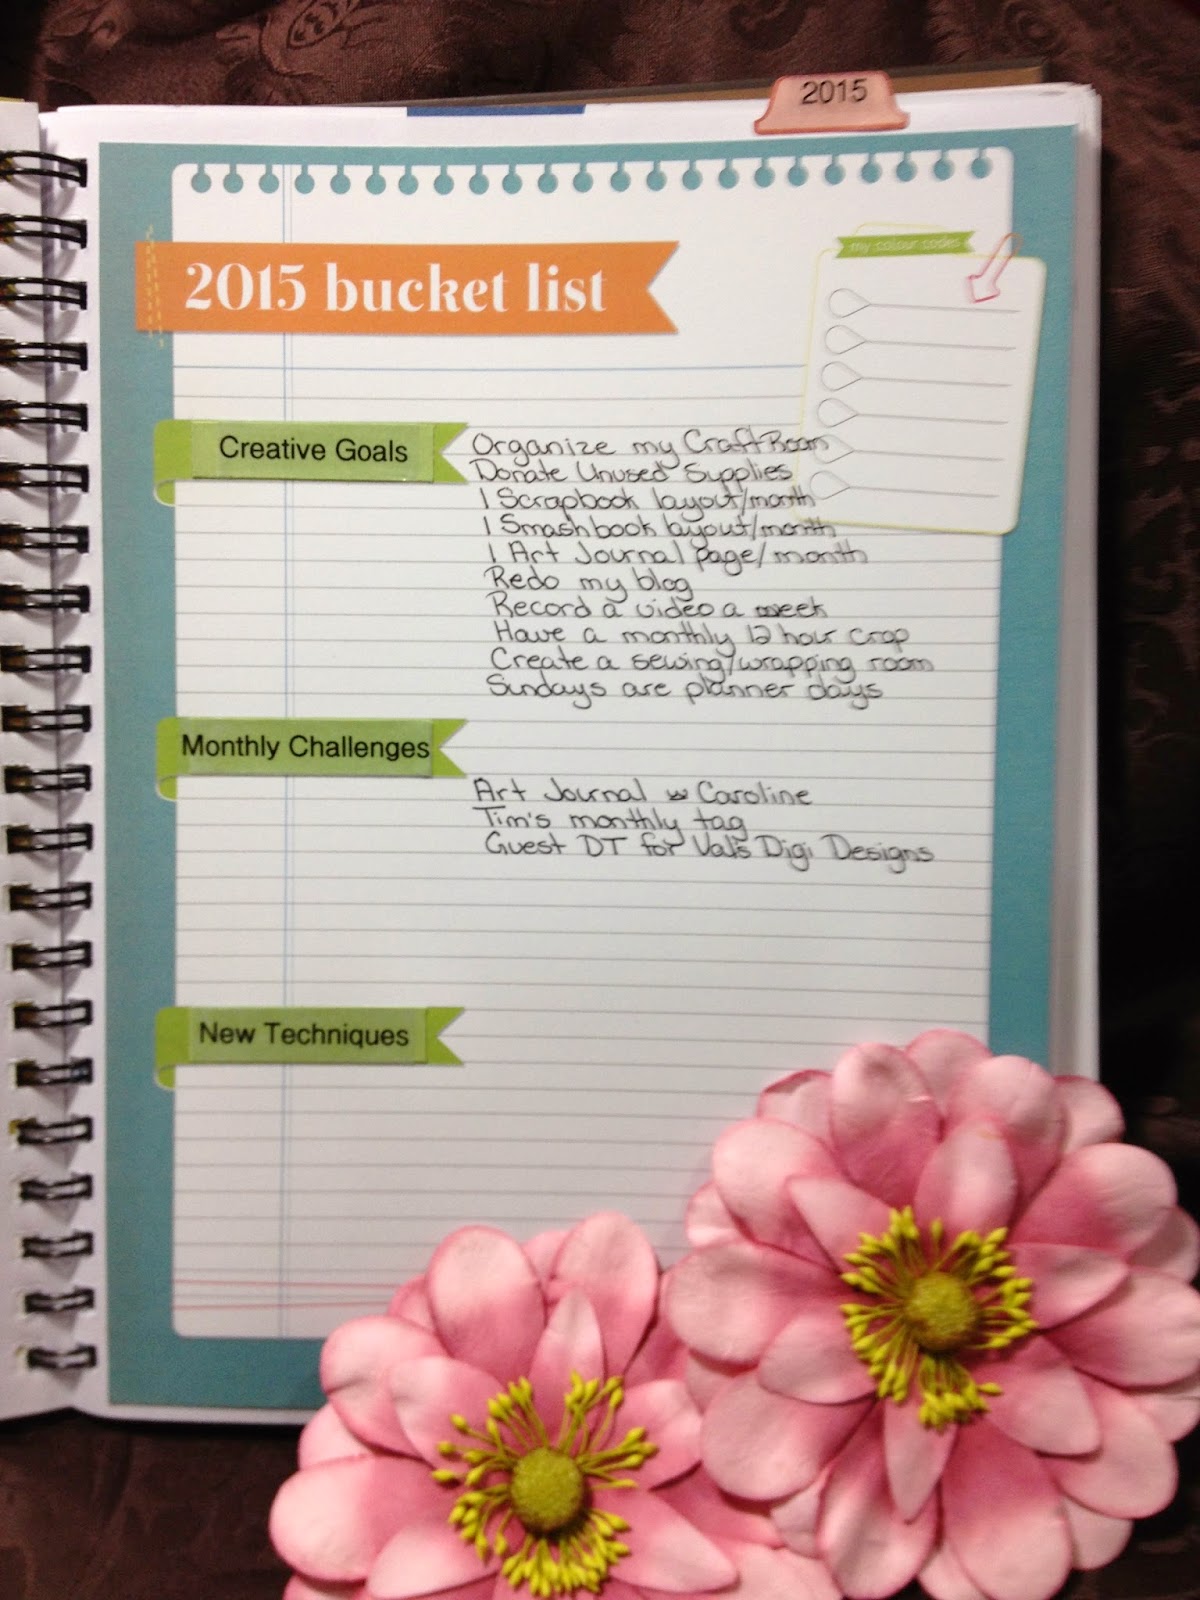 2015
2015 bucket list
my colour codes
Creative Goals
Organize my Craft Room
Donate Unused Supplies
1 Scrapbook layout/month
1 Smashbook layout/month
1 Art Journal page/month
Redo my blog
Record a video a week
Have a monthly 12 hour crop
Create a sewing/wrapping room
Sundays are planner days
Monthly Challenges
Art Journal w Caroline
Tim's monthly tag
Guest DT for Val's Digi Designs
New Techniques